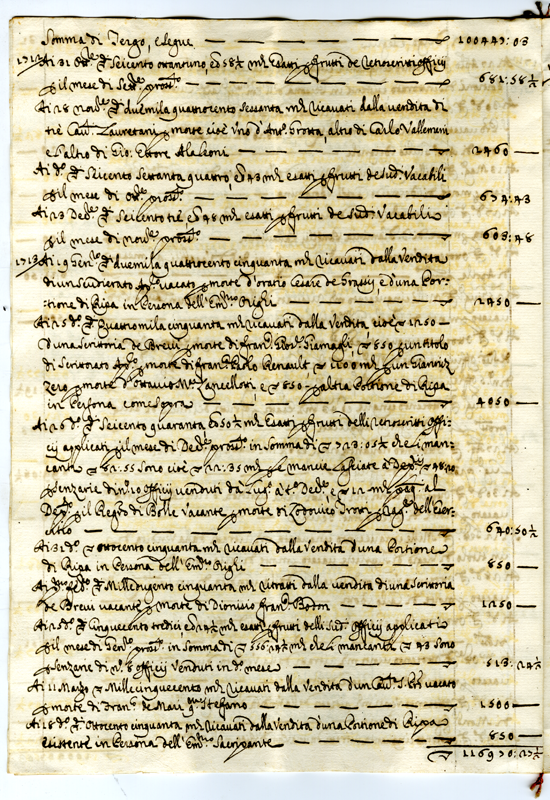 Somma di Tergo, e segue — 100447:03
1712 Ai 31 Ott.re Seicento ottantuno, e 58½ m.ta esatti p frutti de retroscritti offitij
p il mese di Sett.re pross.o — 681:58½
Ai 28 nov.re duemila quattrocento sessanta m.ta ricavati dalla vendita di
trè Cav.ti Lauretani p morte cioè uno d'Ant.o Grotta, altro di Carlo Vallemani
e l'altro di Gio: Ettore Alaleoni — 2460 —
Ai d.o Seicento settanta quattro, e 43 m.ta esatti p frutti de sud.i Vacabili
p il mese di Ott.re pross.o — 674:43
Ai 23 Dec.re Seicento trè e 48 m.ta esatti p frutti de sud.i Vacabili
p il mese di nov.re pross.o — 603:48
1713 Ai 19 Gen.ro duemila quattrocento cinquanta m.ta ricavati dalla Vendita
di un Scudierato Ap.co vacato p morte d'Oratio Cesare de Grassi, ed una Por:
:tione di Ripa in Persona dell'Em.mo Origli — 2450 —
Ai 25 d.o Quattromila cinquanta m.ta ricavati dalla Vendita cioè 1250 —
d'una Scrittoria de Brevi p morte di Fran.co 850 p un titolo
di Scrittorato Ap.co p morte di Fran.co Paolo Renault 1100 m.ta p un Gianniz
zero p morte d'Ottavio M.a Lancellotti, e 850 p altra Portione di Ripa
in Persona come sopra — 4050 —
Ai 26 d.o Seicento quaranta e 50½ m.ta esatti p frutti delli retroscritti offi:
cij applicati p il mese di Dec.re pross.o in somma di 723:05½ che li man:
canti 82:55 sono cioè 22:35 m.ta p le mancie lasciate à Dep.ti 48:20
p senzarie di n.o 10 offitij venduti da Lug.o à t.o Dec.re, e 12 m.ta pag.ti al
p il Regro di Bolle Vacante p morte di Lodovico p dell'Eser:
citio — 640:50½
Ai 31 d.o Ottocento cinquanta m.ta ricavati dalla Vendita d'una Portione
di Ripa in Persona dell'Em.mo Origli — 850 —
Ai Feb.ro Milleducento cinquanta m.ta ritratti dalla vendita di una Scrittoria
de Brevi vacante p morte di Dionisio Fran.co Boton — 1250 —
Ai 25 d.o Cinquecento tredici, e 24½ m.ta esatti p frutti delli sud.i Offitij applicati
p il mese di Gen.ro pross.o in somma di 556:24½ m.ta che li mancanti 43 sono
p senzarie di n.o 8 offitij venduti in d.o mese — 513:24½
Ai 11 Marzo Millecinquecento m.ta ricavati dalla Vendita d'un Cav.to vacato
p morte di Fran.co de Mari q.m Stefano — 1500 —
Ai 18 d.o Ottocento cinquanta m.ta ricavati dalla Vendita d'una Portione di Ripa
esistente in Persona dell'Em.mo Sacripante — 850 —
116970:27½